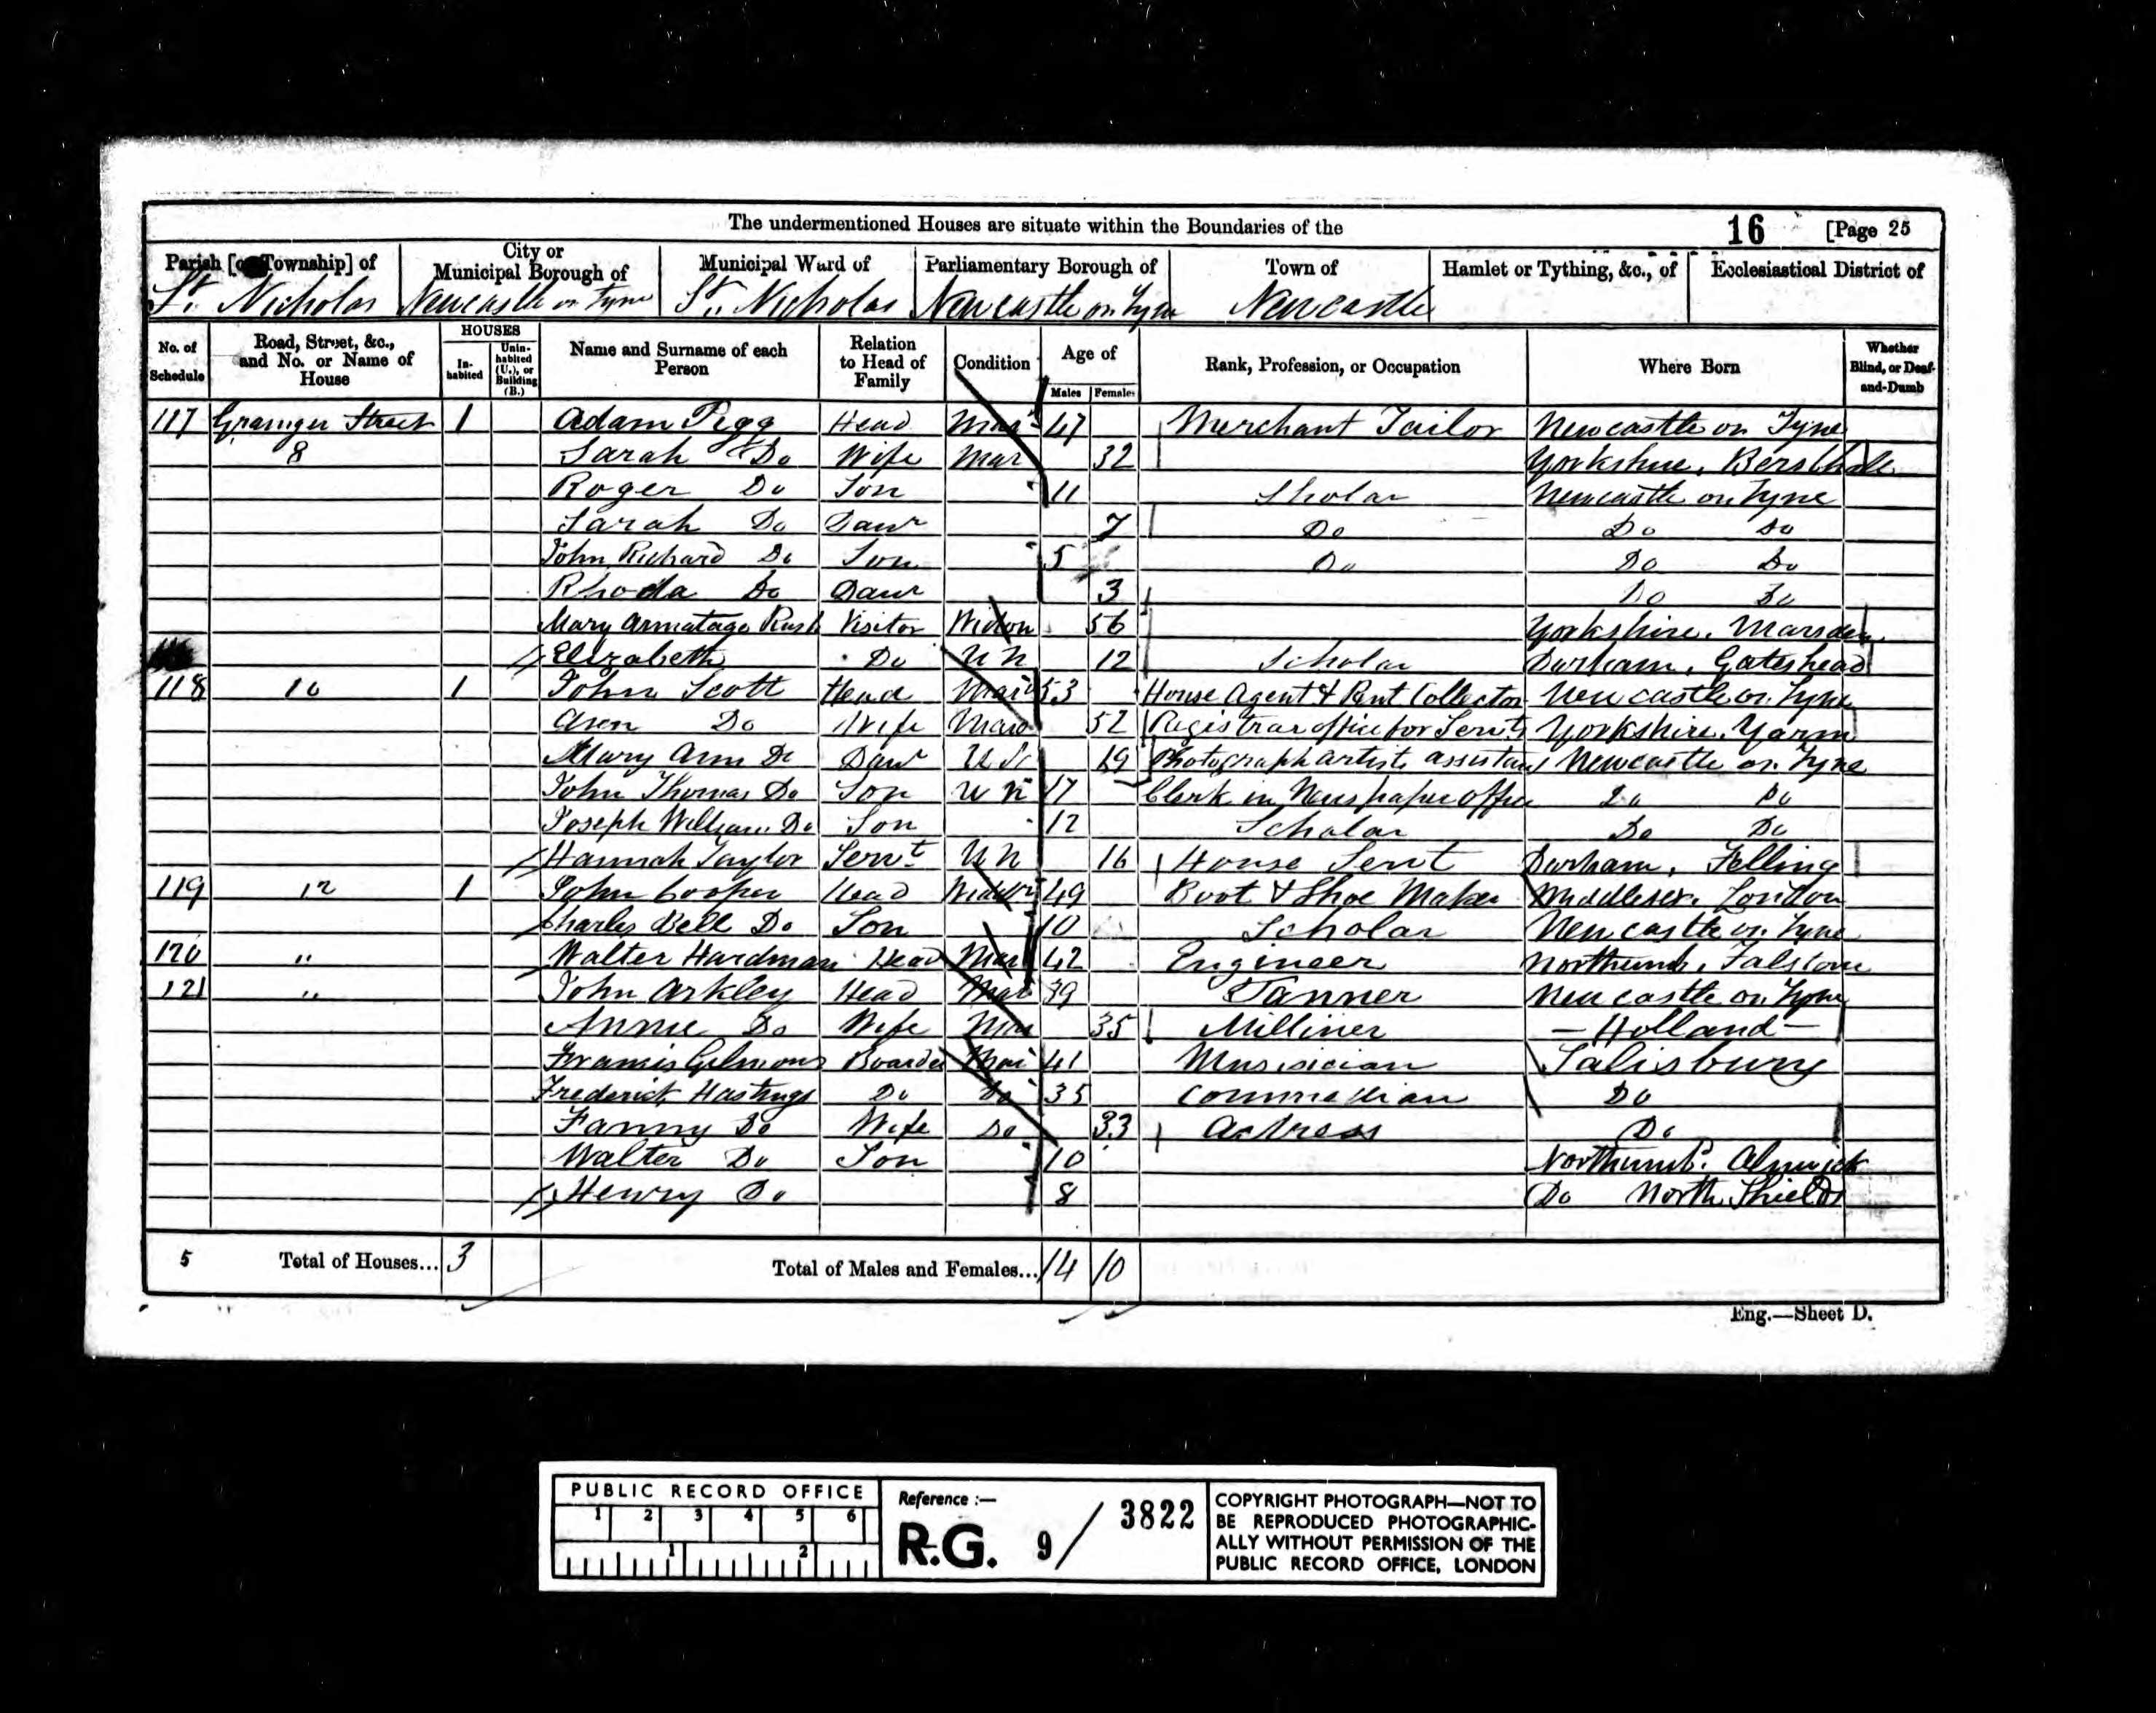 The undermentioned Houses are situate within the Boundaries of the 16 [Page 25
Parish [or Township] of City or Municipal Borough of Municipal Ward of Parliamentary Borough of Town of Hamlet or Tything, &c., of Ecclesiastical District of
St. Nicholas Newcastle on Tyne St. Nicholas Newcastle on Tyne Newcastle
No. of Schedule Road, Street, &c., and No. or Name of House HOUSES Inhabited Uninhabited (U.), or Building (B.) Name and Surname of each Person Relation to Head of Family Condition Age of Males Females Rank, Profession, or Occupation Where Born Whether Blind, or Deaf-and-Dumb
117 Grainger Street 1 Adam Pigg Head Mar 47 Merchant Tailor Newcastle on Tyne
8 Sarah Do Wife Mar 32 Yorkshire,
Roger Do Son 11 Sholar Newcastle on Tyne
Sarah Do Daur 7 Do Do Do
John Richard Do Son 5 Do Do Do
Rhoda Do Daur 3 Do Do
Mary Armatage Visitor Widow 56 Yorkshire, Marsden
Elizabeth Do Un 12 Scholar Durham, Gateshead
118 10 1 John Scott Head Mar 53 House Agent & Rent Collector Newcastle on Tyne
Ann Do Wife Mar 52 Registrar office for Servts Yorkshire, Yarm
Mary Ann Do Daur Un 19 Photograph artists assistant Newcastle on Tyne
John Thomas Do Son Un 17 Clerk in Newspaper office Do Do
Joseph William Do Son 12 Scholar Do Do
Hannah Taylor Servt Un 16 House Servt Durham, Felling
119 12 1 John Cooper Head Widdr 49 Boot & Shoe Maker Middlesex, London
Charles Bell Do Son 10 Scholar Newcastle on Tyne
120 " Walter Hardman Head Mar 42 Engineer Northumb, Falstone
121 " John Arkley Head Mar 39 Tanner Newcastle on Tyne
Annie Do Wife Mar 35 Milliner — Holland —
Francis Gilmour Boarder Mar 41 Mussician Salisbury
Frederick Hastings Do Do 35 Commedian Do
Fanny Do Wife Do 33 Actress Do
Walter Do Son 10 Northumb. Alnwick
Henry Do 8 Do North Shields
5 Total of Houses... 3 Total of Males and Females... 14 10
Eng.—Sheet D.
PUBLIC RECORD OFFICE
1 2 3 4 5 6
1 2
Reference :—
R.G. 9 / 3822
COPYRIGHT PHOTOGRAPH—NOT TO
BE REPRODUCED PHOTOGRAPHIC-
ALLY WITHOUT PERMISSION OF THE
PUBLIC RECORD OFFICE, LONDON